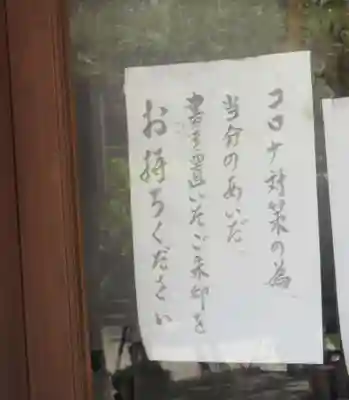 コロナ対策の為
当分のあいだ、
書き置いそご朱印を
お持ちください